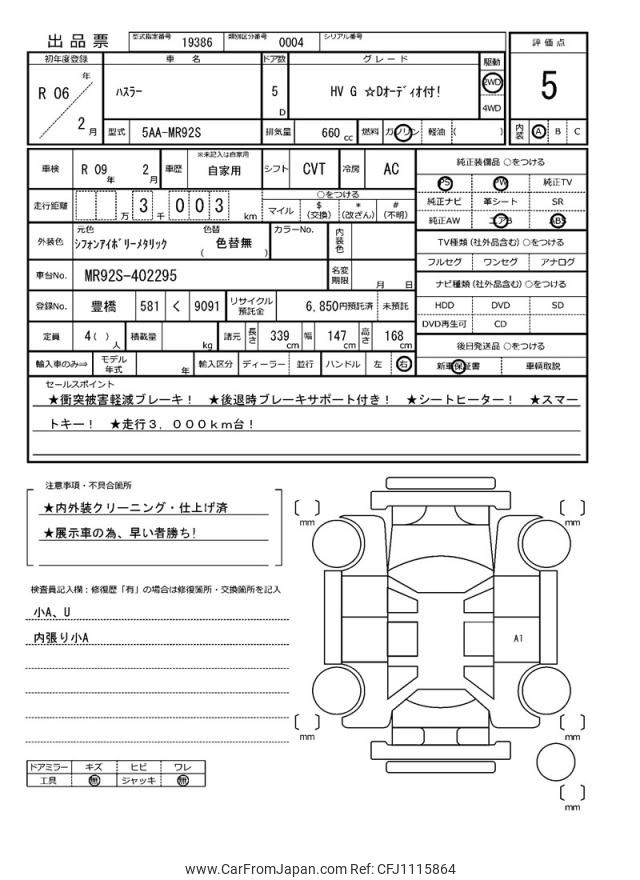 出品票 型式指定番号 19386 類別区分番号 0004 シリアル番号
初年度登録 車名 ドア数 グレード 駆動 評価点
R 06 年 2 月 ハスラー 5 D HV G ☆Dオーディオ付! 2WD 4WD 5
型式 5AA-MR92S 排気量 660 cc 燃料 ガソリン 軽油 ( ) 内装 A B C
車検 R 09 年 2 月 車歴 ※未記入は自家用 自家用 シフト CVT 冷房 AC 純正装備品 ○をつける
PS PW 純正TV
走行距離 万 3 千 0 0 3 km ○をつける
マイル $ (交換) * (改ざん) # (不明)
純正ナビ 革シート SR
純正AW エアB ABS
外装色 元色 ｼﾌｫﾝｱｲﾎﾞﾘｰﾒﾀﾘｯｸ 色替 ( 色替無 ) カラーNo. 内装色
TV種類 (社外品含む) ○をつける
フルセグ ワンセグ アナログ
車台No. MR92S-402295 名変期限 月 日
ナビ種類 (社外品含む) ○をつける
登録No. 豊橋 581 く 9091 リサイクル預託金 6,850円預託済 未預託
HDD DVD SD
DVD再生可 CD
定員 4( ) 人 積載量 kg 諸元 長さ 339 cm 幅 147 cm 高さ 168 cm
後日発送品 ○をつける
輸入車のみ⇒ モデル年式 年 輸入区分 ディーラー 並行 ハンドル 左 右
新車保証書 車輌取説
セールスポイント
★衝突被害軽減ブレーキ! ★後退時ブレーキサポート付き! ★シートヒーター! ★スマー
トキー! ★走行3,000km台!
注意事項・不具合箇所
★内外装クリーニング・仕上げ済
★展示車の為、早い者勝ち!
検査員記入欄:修復歴「有」の場合は修復箇所・交換箇所を記入
小A、U
内張り小A
ドアミラー キズ ヒビ ワレ
工具 無 ジャッキ 無
[ ] mm
[ ] mm
A1
[ ] mm
[ ] mm
[ ] mm
www.CarFromJapan.com Ref: CFJ1115864